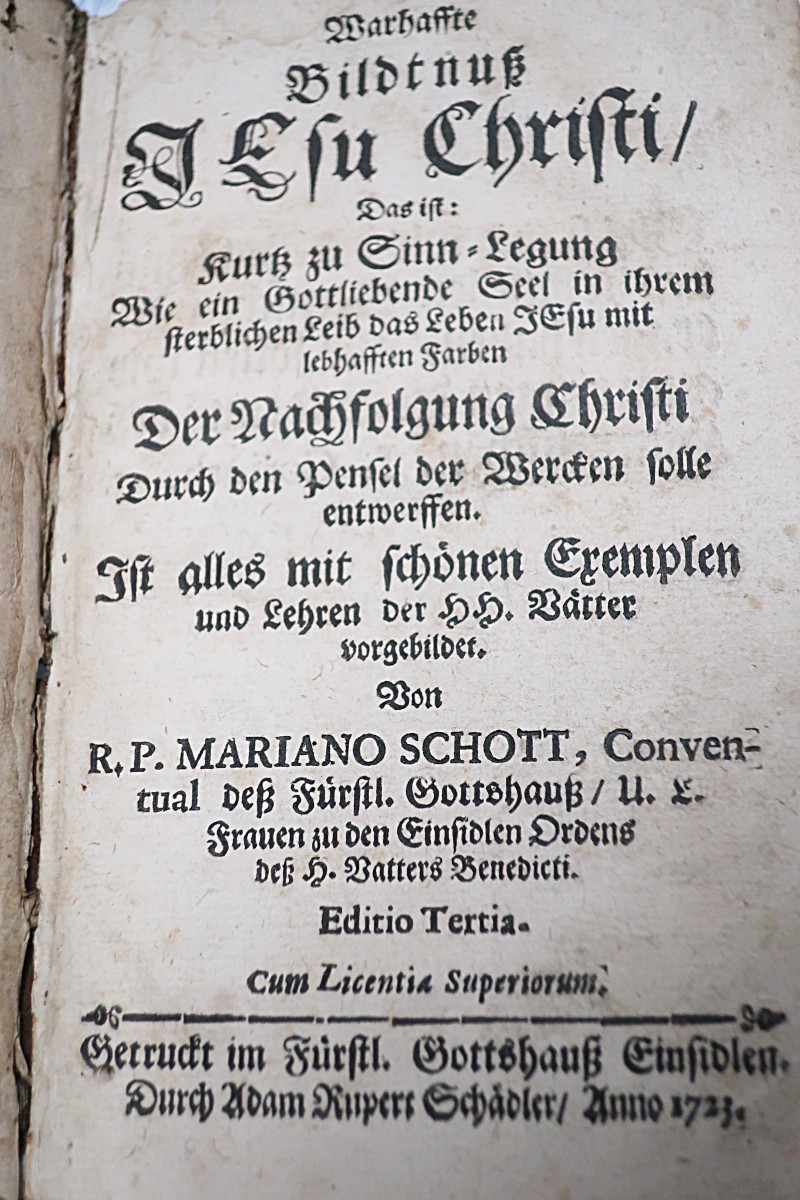 Warhaffte
Bildtnuß
JEsu Christi/
Das ist:
Kurtz zu Sinn-Legung
Wie ein Gottliebende Seel in ihrem
sterblichen Leib das Leben JEsu mit
lebhafften Farben
Der Nachfolgung Christi
Durch den Pensel der Wercken solle
entwerffen.
Ist alles mit schönen Exemplen
und Lehren der HH. Vätter
vorgebildet.
Von
R. P. MARIANO SCHOTT, Conven-
tual deß Fürstl. Gottshauß/ U. L.
Frauen zu den Einsidlen Ordens
deß H. Vatters Benedicti.
Editio Tertia.
Cum Licentia Superiorum.
Getruckt im Fürstl. Gottshauß Einsidlen.
Durch Adam Rupert Schädler/ Anno 1723.